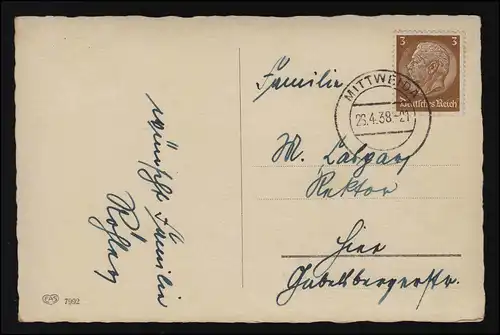 wünscht Familie
Familie
M.
Rektor
Hier
Gabelsbergerstr.
3 3
Deutsches Reich
MITTWEIDA
26.4.38.-21
EAS 7992